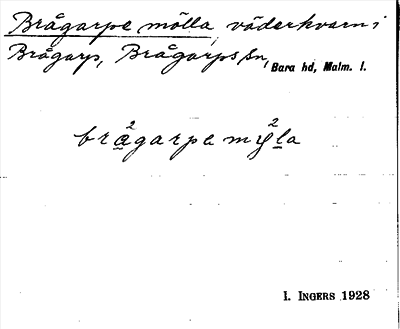 Brågarpe mölla, väderkvarn i
Brågarp, Brågarps sn, Bara hd, Malm. l.
brå²garpamy²la
I. INGERS 1928